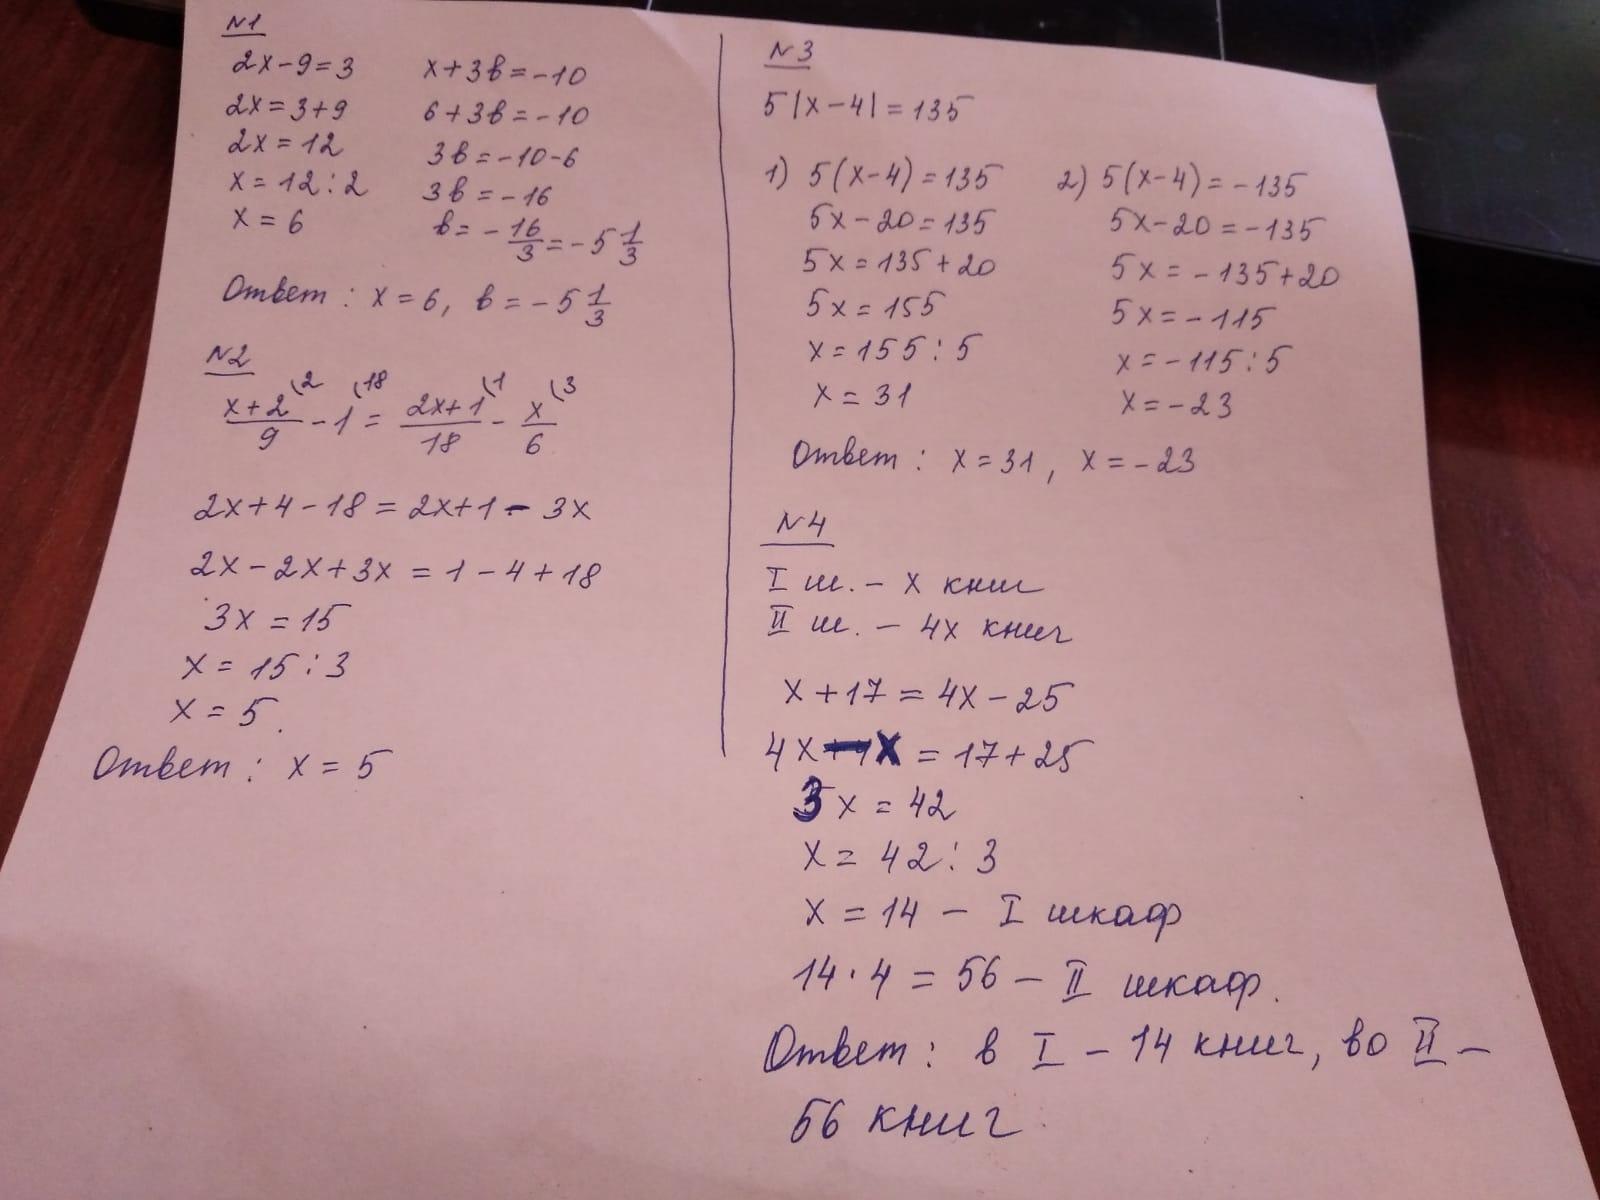 №1
2x-9=3
2x=3+9
2x=12
x=12:2
x=6
x+3в=-10
6+3в=-10
3в=-10-6
3в=-16
в=-16/3=-5 1/3
Ответ: x=6, в=-5 1/3
№2
(x+2)/9 \2 - 1 \18 = (2x+1)/18 \1 - x/6 \3
2x+4-18=2x+1-3x
2x-2x+3x=1-4+18
3x=15
x=15:3
x=5.
Ответ: x=5
№3
5|x-4|=135
1) 5(x-4)=135
5x-20=135
5x=135+20
5x=155
x=155:5
x=31
2) 5(x-4)=-135
5x-20=-135
5x=-135+20
5x=-115
x=-115:5
x=-23
Ответ: x=31, x=-23
№4
I ш. - x книг
II ш. - 4x книг
x+17=4x-25
4x-x=17+25
3x=42
x=42:3
x=14 - I шкаф
14·4=56 - II шкаф.
Ответ: в I - 14 книг, во II -
56 книг